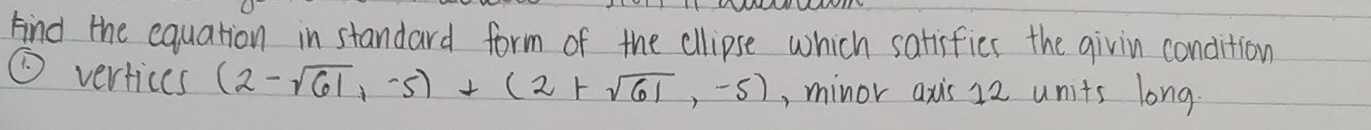 Find the equation in standard form of the ellipse which satisfies the givin condition
① vertices (2-√61, -5) + (2+√61, -5), minor axis 12 units long.